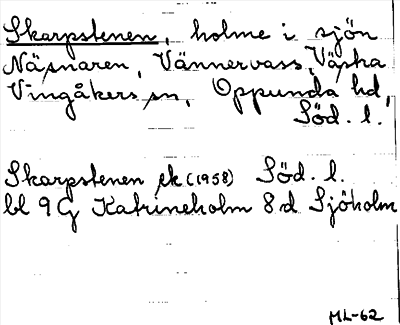 Skarpstenen, holme i sjön
Näsnaren, Vännervass, Västra
Vingåkers sn, Oppunda hd,
Söd. l.
Skarpstenen ek (1958) Söd. l.
bl 9G Katrineholm 8d Sjöholm
ML-62